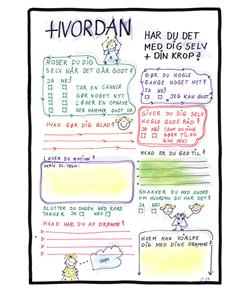 HVORDAN
HAR DU DET
MED DIG SELV
+ DIN KROP?
ROSER DU DIG
SELV NÅR DET GÅR GODT?
JA NEJ
TAR EN CHANCE
GØR NOGET NYT
LØSER EN OPGAVE
SER HAMMER GODT UD
HVAD GØR DIG GLAD?
LAVER DU MOTION?
SKRIV EL. TEGN:
SLUTTER DU DAGEN MED RARE
TANKER JA NEJ
HVAD HAR DU AF DRØMME?
GØR DU NOGLE
GANGE NOGET NYT?
JA NEJ
JEG KAN GODT
GIVER DU DIG SELV
NOGLE GODE RÅD?
JA NEJ
HVAD ER DU GOD TIL?
SNAKKER DU MED ANDRE
OM HVORDAN DU HAR DET?
JA NEJ
HVEM KAN HJÆLPE
DIG MED DINE DRØMME?